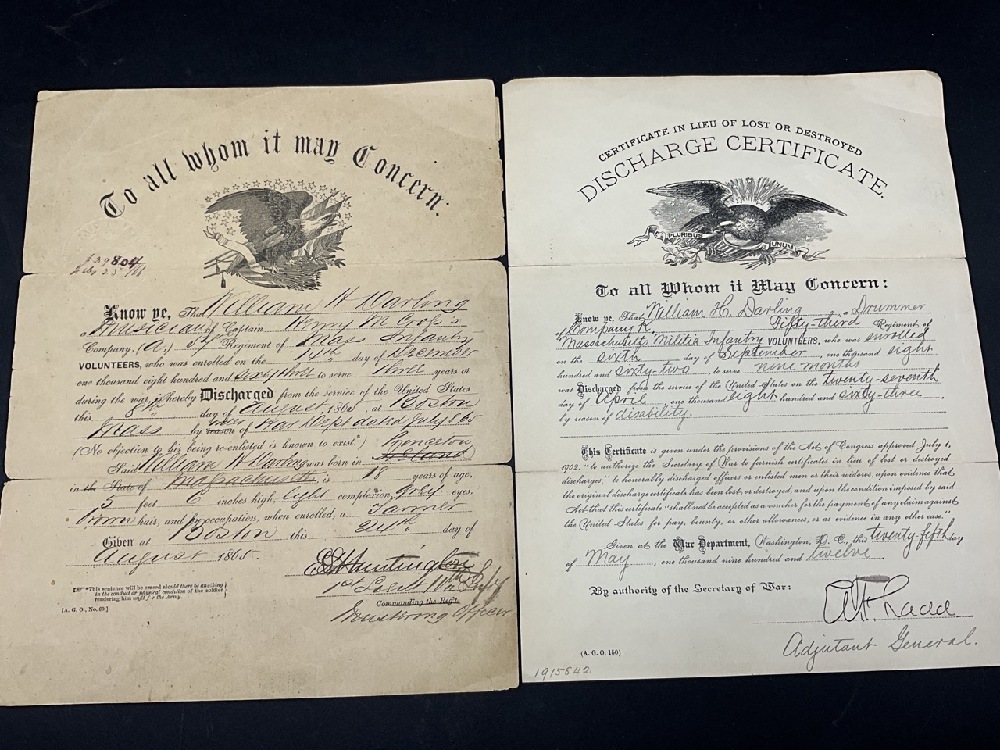 To all whom it may Concern:
Know ye, That William H Darling
Musician of Captain Henry M
Company, (A,) 57 Regiment of Mass Infantry
VOLUNTEERS, who was enrolled on the 14th day of December
one thousand eight hundred and sixty three to serve three years or
during the war, is hereby Discharged from the service of the United States
this 8th day of August 1865, at Boston
Mass by reason of War Dept dated July
(No objection to his being re-enlisted is known to exist*)
Said William H Darling was born in
in the State of Massachusetts is 18 years of age,
5 feet 6 inches high, light complexion, grey eyes,
brown hair, and by occupation, when enrolled, a Farmer
Given at Boston this day of
August 1865.
*This sentence will be erased should there be anything
in the conduct or physical condition of the soldier
rendering him unfit for the Army.
[A. G. O., No. 99.]
Commanding the Reg't.
Mustering Officer
CERTIFICATE IN LIEU OF LOST OR DESTROYED
DISCHARGE CERTIFICATE.
PLURIBUS UNUM
To all Whom it May Concern:
Know ye, That William H. Darling Drummer
of Company K, Fifty-third Regiment of
Massachusetts Militia Infantry VOLUNTEERS, who was enrolled
on the sixth day of September, one thousand eight
hundred and sixty-two to serve nine months
was Discharged from the service of the United States on the twenty-seventh
day of April, one thousand eight hundred and sixty-three
by reason of disability.
This Certificate is given under the provisions of the Act of Congress approved July 1,
1902, "to authorize the Secretary of War to furnish certificates in lieu of lost or destroyed
discharges," to honorably discharged officers or enlisted men or their widows, upon evidence that
the original discharge certificate has been lost or destroyed, and upon the condition imposed by said
Act that this certificate "shall not be accepted as a voucher for the payment of any claim against
the United States for pay, bounty, or other allowance, or as evidence in any other case."
Given at the War Department, Washington, D. C., this twenty-fifth day
of May, one thousand nine hundred and twelve
By authority of the Secretary of War:
Adjutant General.
(A. G. O. 150)
1915842.